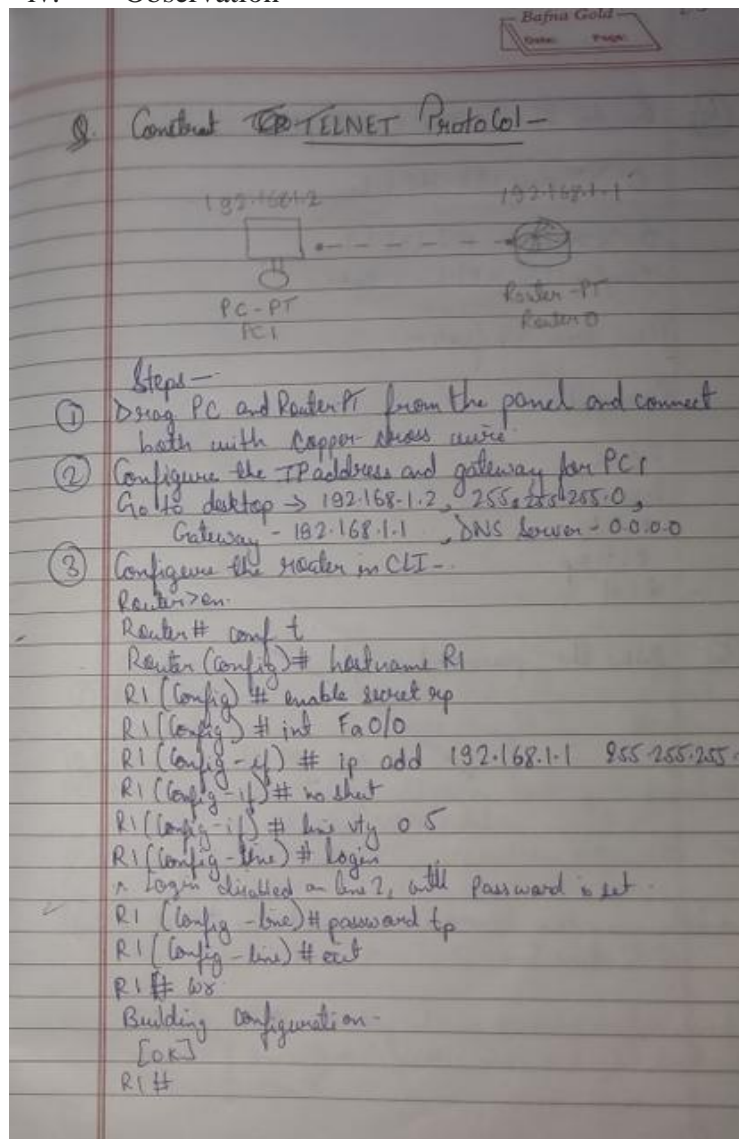 IV. Observation
Bafna Gold
Date: Page:
Q. Construct TELNET Protocol -
192.168.1.2 192.168.1.1
PC-PT Router-PT
PC1 Router0
Steps -
① Drag PC and Router PT from the panel and connect
both with copper cross wire
② Configure the IP address and gateway for PC1
Go to desktop → 192.168.1.2, 255.255.255.0,
Gateway - 192.168.1.1, DNS Server - 0.0.0.0
③ Configure the router in CLI -
Router>en
Router# conf t
Router (config)# hostname R1
R1 (Config) # enable secret rp
R1 (Config) # int Fa0/0
R1 (Config-if) # ip add 192.168.1.1 255.255.255.
R1 (Config-if) # no shut
R1 (Config-if) # line vty 0 5
R1 (Config-line) # Login
Login disabled on line 2, until Password is set.
R1 (Config-line) # password tp
R1 (Config-line) # exit
R1 # wr
Building Configuration -
[OK]
R1 #